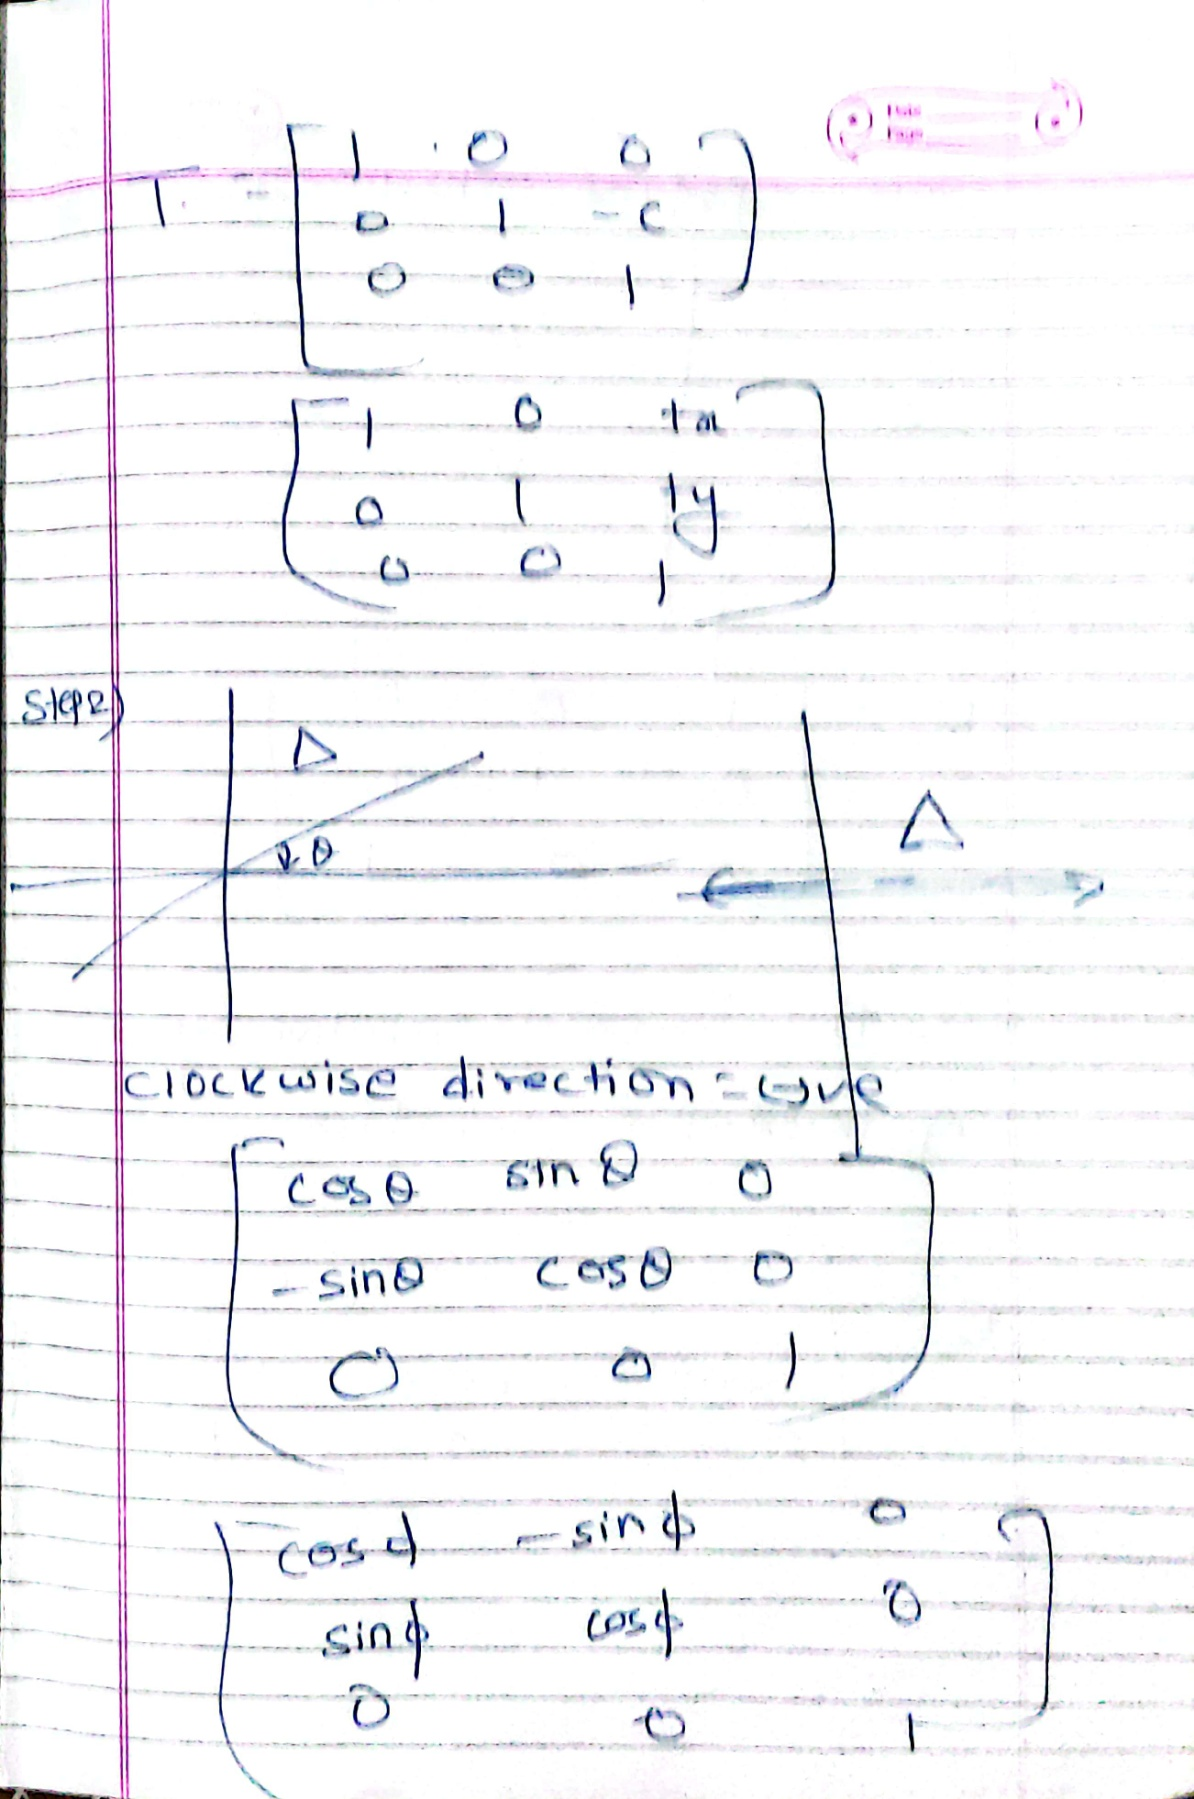 T = [ 1 0 0
0 1 -c
0 0 1 ]
[ 1 0 tx
0 1 ty
0 0 1 ]
Step 2)
θ
clockwise direction = -ve
[ cosθ sinθ 0
-sinθ cosθ 0
0 0 1 ]
[ cosϕ -sinϕ 0
sinϕ cosϕ 0
0 0 1 ]